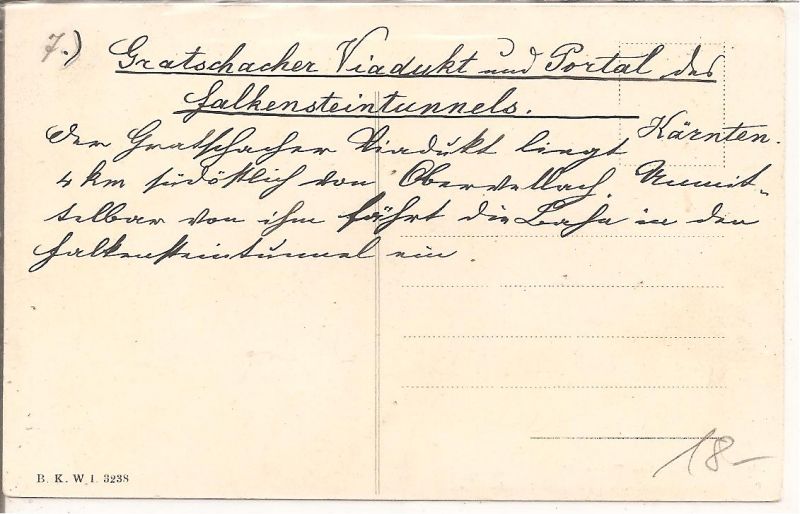 7.)
Gratschacher Viadukt und Portal des
Falkensteintunnels.
Kärnten.
Der Gratschacher Viadukt liegt
4 km südöstlich von Obervellach. Unmit-
telbar von ihm fährt die Bahn in den
Falkensteintunnel ein
B. K. W. I. 3238
18-